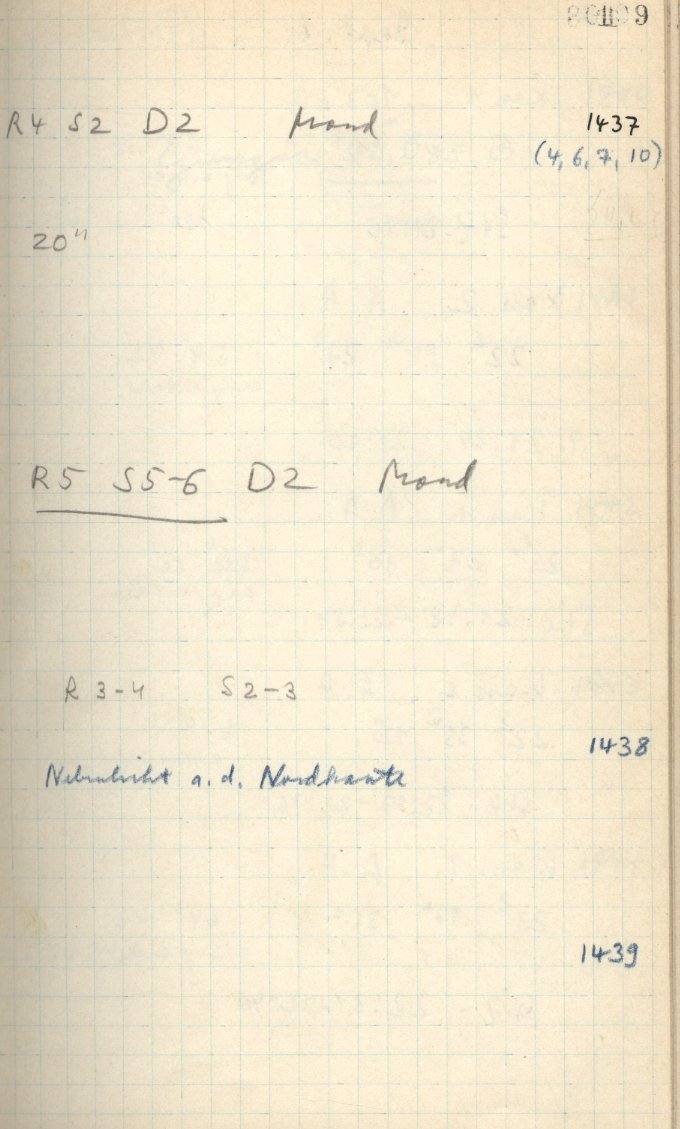 9
R4 S2 D2 Mond 1437
(4, 6, 7, 10)
20"
R5 S5-6 D2 Mond
R 3-4 S2-3
1438
Nebenlicht a. d. Nordkante
1439